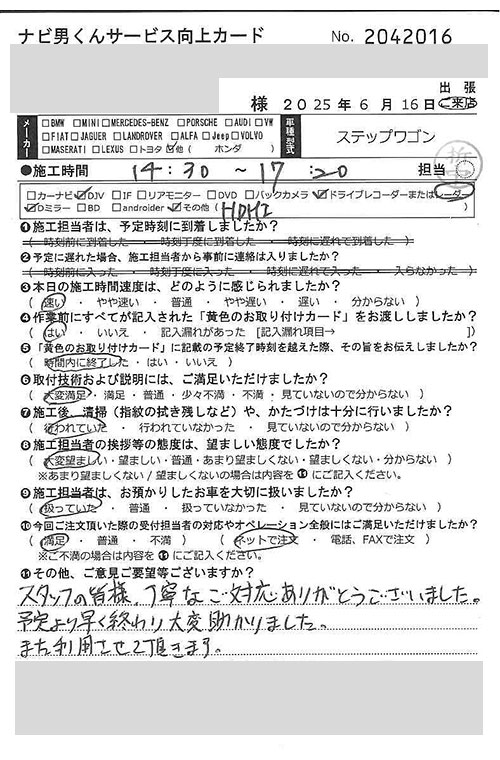 ナビ男くんサービス向上カード No. 2042016
様 2025年6月16日 出張 ・ご来店
メーカー □BMW □MINI □MERCEDES-BENZ □PORSCHE □AUDI □VW
□FIAT □JAGUER □LANDROVER □ALFA □Jeep □VOLVO
□MASERATI □LEXUS □トヨタ ☑他 ( ホンダ )
車種型式 ステップワゴン
●施工時間 14:30 ~ 17:20 担当
□カーナビ ☑DJV □IF □リアモニター □DVD □バックカメラ ☑ドライブレコーダーまたはレーダー
☑Dミラー □BD □androider ☑その他 ( HDMI )
❶施工担当者は、予定時刻に到着しましたか?
( 時刻前に到着した ・ 時刻丁度に到着した ・ 時刻に遅れて到着した )
❷予定に遅れた場合、施工担当者から事前に連絡は入りましたか?
( 時刻前に入った ・ 時刻丁度に入った ・ 時刻に遅れて入った ・ 入らなかった )
❸本日の施工時間速度は、どのように感じられましたか?
( 速い ・ やや速い ・ 普通 ・ やや遅い ・ 遅い ・ 分からない )
❹作業前にすべてが記入された「黄色のお取り付けカード」をお渡ししましたか?
( はい ・ いいえ ・ 記入漏れがあった [記入漏れ項目→ ])
❺「黄色のお取り付けカード」に記載の予定終了時刻を越えた際、その旨をお伝えしましたか?
( 時間内に終了した ・ はい ・ いいえ )
❻取付技術および説明には、ご満足いただけましたか?
( 大変満足 ・ 満足 ・ 普通 ・ 少々不満 ・ 不満 ・ 見ていないので分からない )
❼施工後、清掃(指紋の拭き残しなど)や、かたづけは十分に行いましたか?
( 行われていた ・ 行われていなかった ・ 見ていないので分からない )
❽施工担当者の挨拶等の態度は、望ましい態度でしたか?
( 大変望ましい ・ 望ましい ・ 普通 ・ あまり望ましくない ・ 望ましくない ・ 分からない )
※あまり望ましくない / 望ましくないの場合は内容を⓫にご記入ください。
❾施工担当者は、お預かりしたお車を大切に扱いましたか?
( 扱っていた ・ 普通 ・ 扱っていなかった ・ 見ていないので分からない )
❿今回ご注文頂いた際の受付担当者の対応やオペレーション全般にはご満足いただけましたか?
( 満足 ・ 普通 ・ 不満 ) ( ネットで注文 ・ 電話、FAXで注文 )
※ご不満の場合は内容を⓫にご記入ください。
⓫その他、ご意見ご要望等ございますか?
スタッフの皆様、丁寧なご対応ありがとうございました。
予定より早く終わり大変助かりました。
また利用させて頂きます。